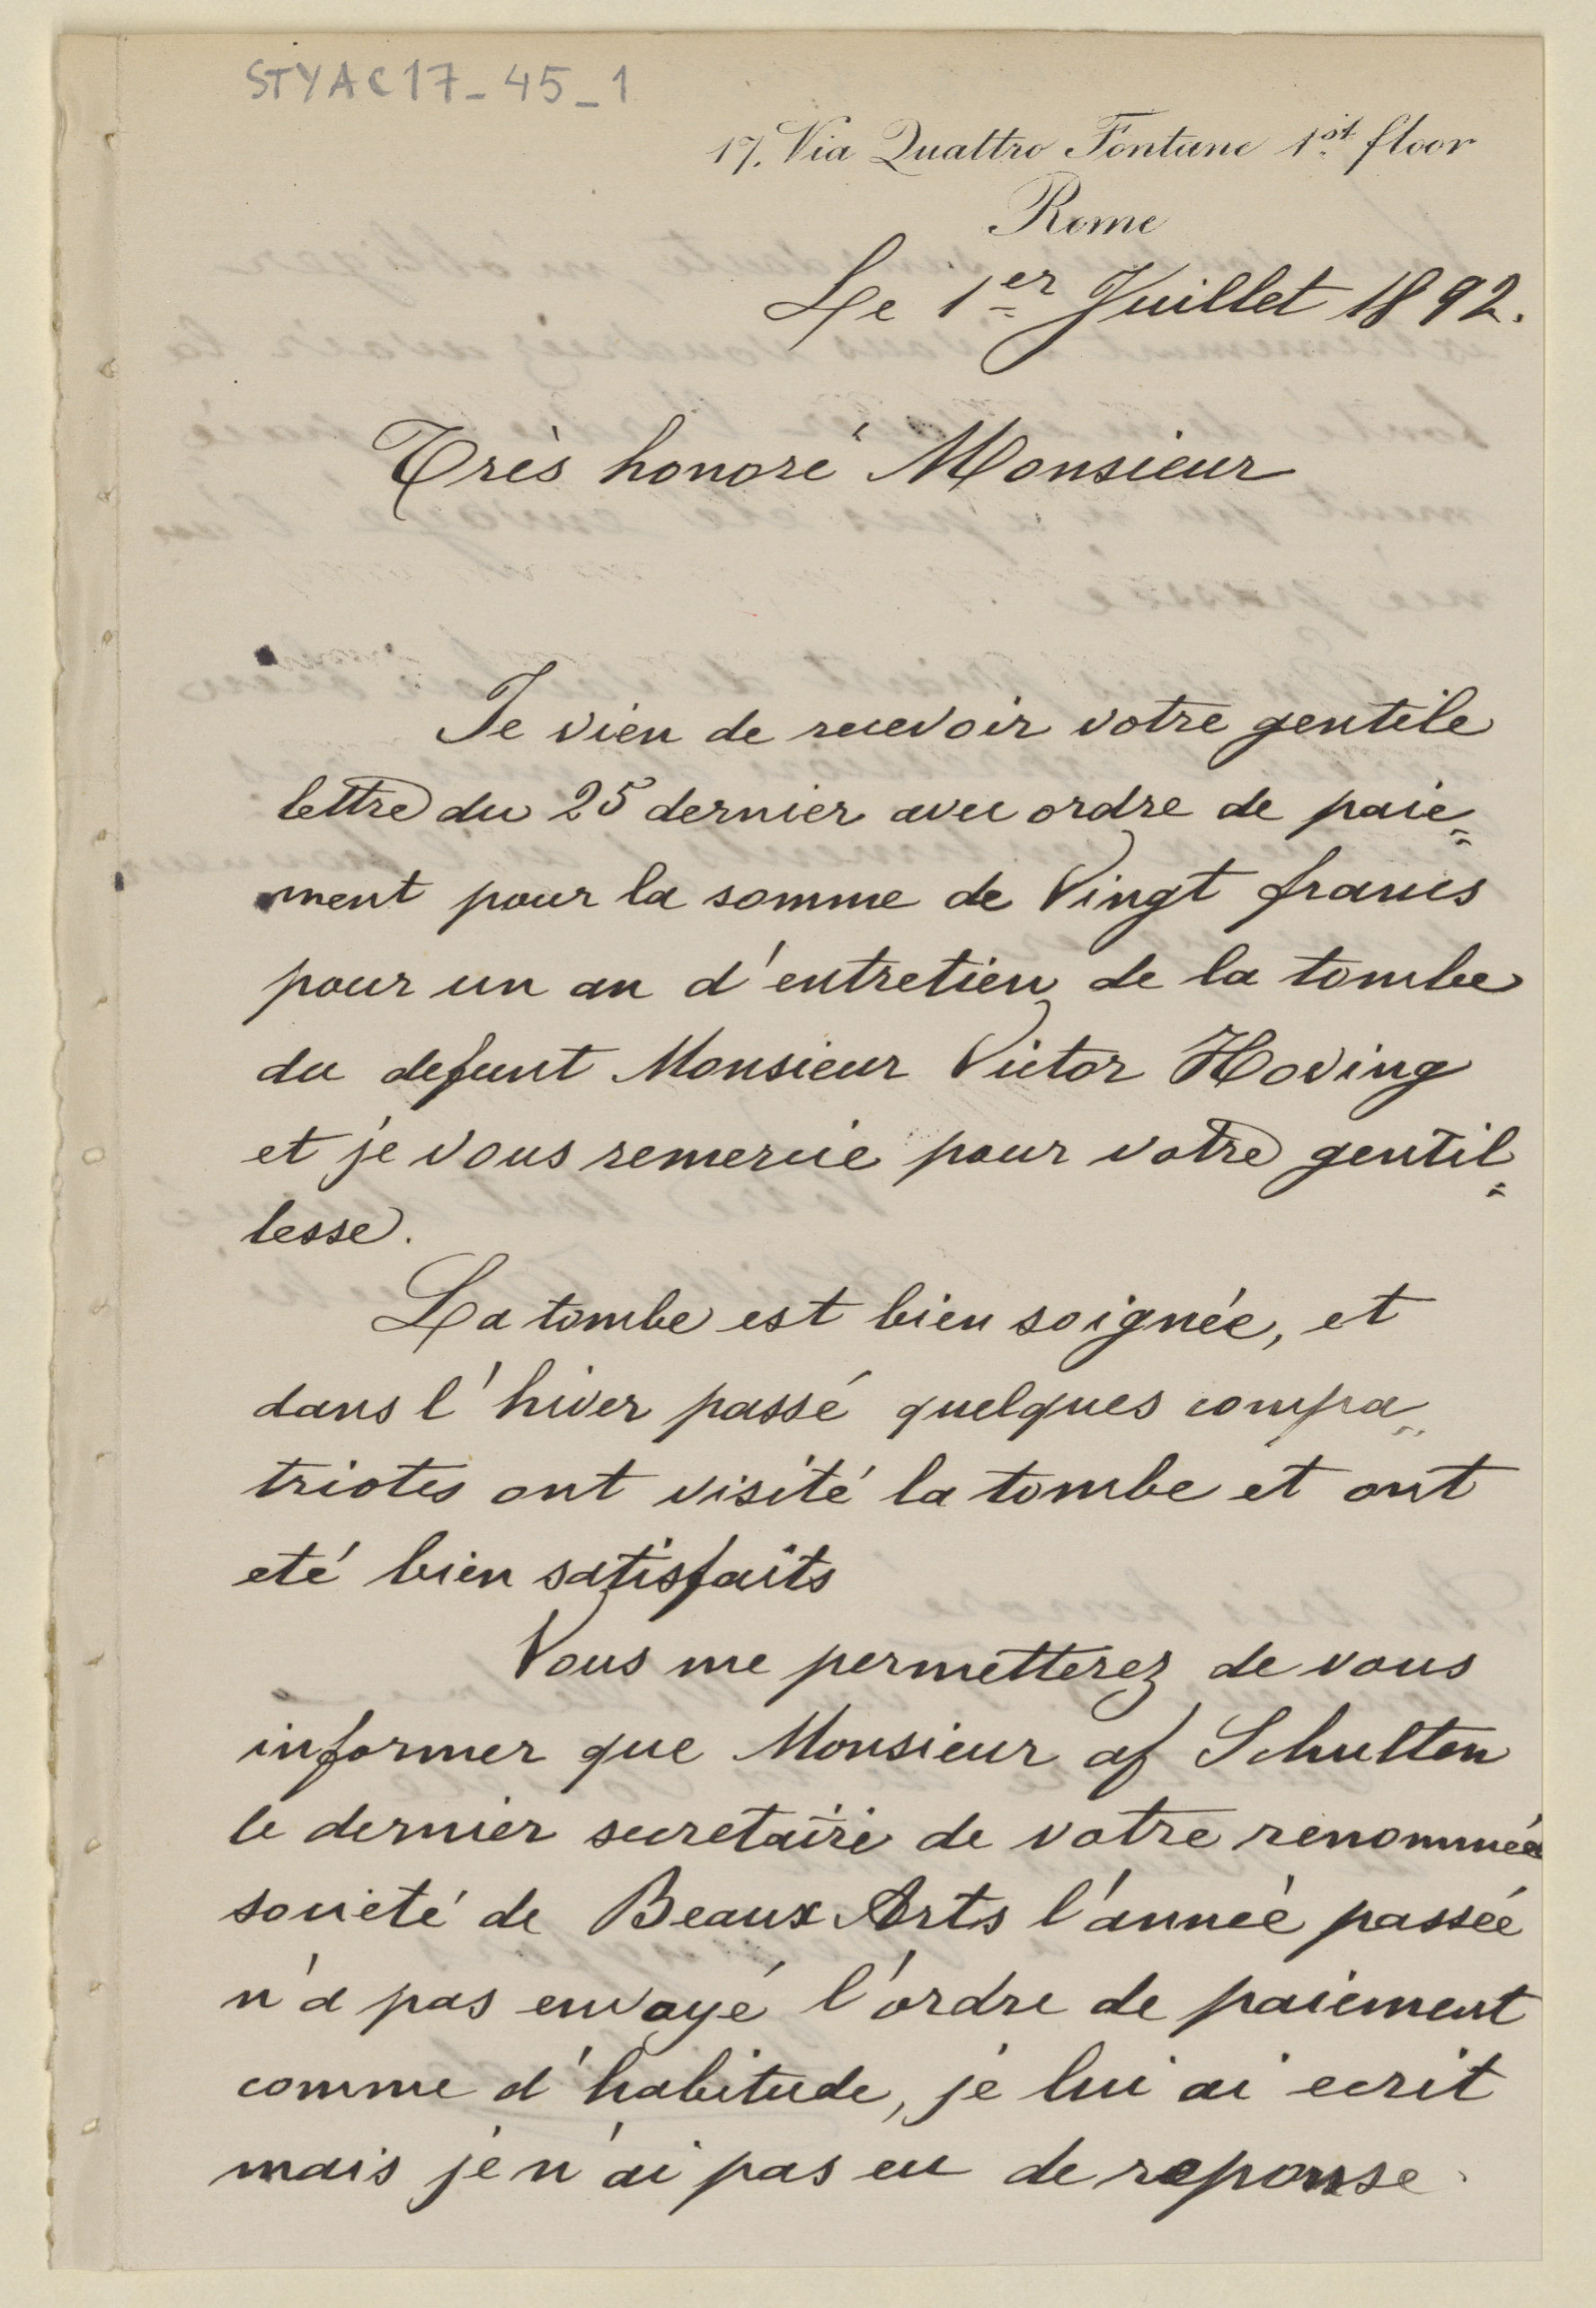 STYAC17_45_1
17. Via Quattro Fontane 1st floor
Rome
Le 1er Juillet 1892.
Très honoré Monsieur
Je vien de recevoir votre gentile
lettre du 25 dernier avec ordre de paie=
ment pour la somme de Vingt francs
pour un an d'entretien de la tombe
du defunt Monsieur Victor Hoving
et je vous remercie pour votre gentil=
lesse.
La tombe est bien soignée, et
dans l'hiver passé quelques compa=
triotes ont visité la tombe et ont
eté bien satisfaits
Vous me permetterez de vous
informer que Monsieur af Schulten
le dernier secretaire de votre renommée
societé de Beaux Arts l'année passée
n'a pas envoyé l'ordre de paiement
comme d'habitude, je lui ai ecrit
mais je n'ai pas eu de reponse.